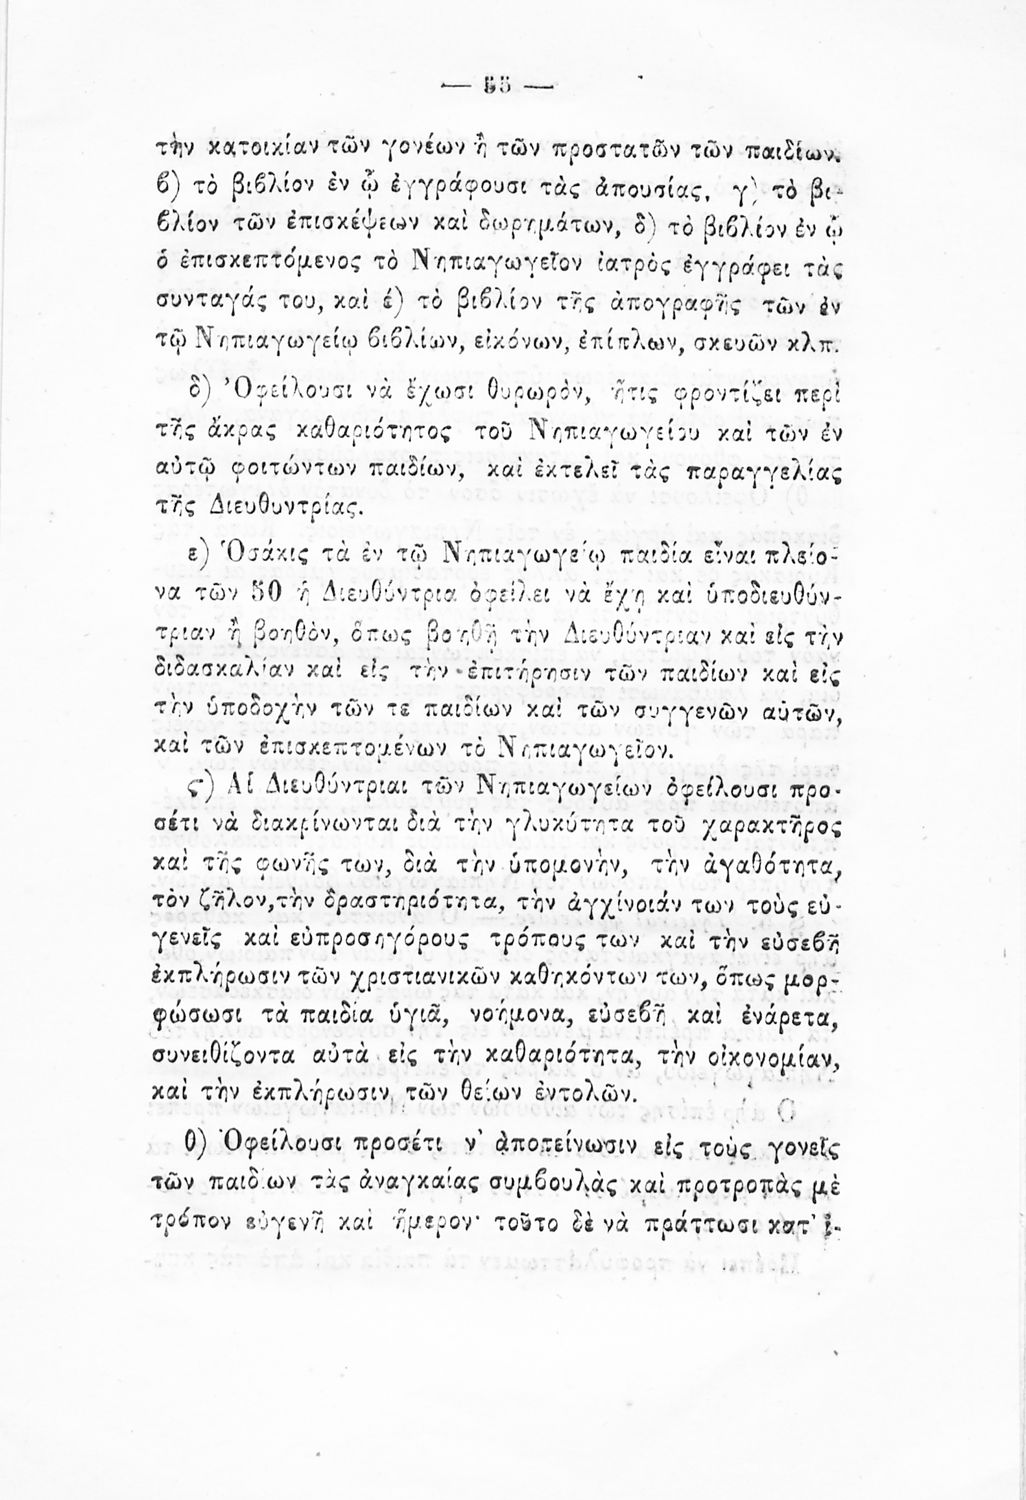 — 55 —
τὴν κατοικίαν τῶν γονέων ἢ τῶν προστατῶν τῶν παιδίων.
ϐ) τὸ βιϐλίον ἐν ᾧ ἐγγράφουσι τὰς ἀπουσίας, γ) τὸ βι-
ϐλίον τῶν ἐπισκέψεων καὶ δωρημάτων, δ) τὸ βιϐλίον ἐν ᾧ
ὁ ἐπισκεπτόμενος τὸ Νηπιαγωγεῖον ἰατρὸς ἐγγράφει τὰς
συνταγάς του, καὶ έ) τὸ βιϐλίον τῆς ἀπογραφῆς τῶν ἐν
τῷ Νηπιαγωγείῳ ϐιϐλίων, εἰκόνων, ἐπίπλων, σκευῶν κλπ.
δ) Ὀφείλουσι νὰ ἔχωσι θυρωρὸν, ἥτις φροντίζει περὶ
τῆς ἄκρας καθαριότητος τοῦ Νηπιαγωγείου καὶ τῶν ἐν
αὐτῷ φοιτώντων παιδίων, καὶ ἐκτελεῖ τὰς παραγγελίας
τῆς Διευθυντρίας.
ε) Ὁσάκις τὰ ἐν τῷ Νηπιαγωγείῳ παιδία εἶναι πλείο-
να τῶν 50 ἡ Διευθύντρια ὀφείλει νὰ ἔχῃ καὶ ὑποδιευθύν-
τριαν ἢ βοηθὸν, ὅπως βοηθῇ τὴν Διευθύντριαν καὶ εἰς τὴν
διδασκαλίαν καὶ εἰς τὴν ἐπιτήρησιν τῶν παιδίων καὶ εἰς
τὴν ὑποδοχὴν τῶν τε παιδίων καὶ τῶν συγγενῶν αὐτῶν,
καὶ τῶν ἐπισκεπτομένων τὸ Νηπιαγωγεῖον.
ς) Αἱ Διευθύντριαι τῶν Νηπιαγωγείων ὀφείλουσι προ-
σέτι νὰ διακρίνωνται διὰ τὴν γλυκύτητα τοῦ χαρακτῆρος
καὶ τῆς φωνῆς των, διὰ τὴν ὑπομονὴν, τὴν ἀγαθότητα,
τὸν ζῆλον, τὴν δραστηριότητα, τὴν ἀγχίνοιάν των τοὺς εὐ-
γενεῖς καὶ εὐπροσηγόρους τρόπους των καὶ τὴν εὐσεϐῆ
ἐκπλήρωσιν τῶν χριστιανικῶν καθηκόντων των, ὅπως μορ-
φώσωσι τὰ παιδία ὑγιᾶ, νοήμονα, εὐσεϐῆ καὶ ἐνάρετα,
συνειθίζοντα αὐτὰ εἰς τὴν καθαριότητα, τὴν οἰκονομίαν,
καὶ τὴν ἐκπλήρωσιν τῶν θείων ἐντολῶν.
θ) Ὀφείλουσι προσέτι ν' ἀποτείνωσιν εἰς τοὺς γονεῖς
τῶν παιδίων τὰς ἀναγκαίας συμϐουλὰς καὶ προτροπὰς μὲ
τρόπον εὐγενῆ καὶ ἥμερον· τοῦτο δὲ νὰ πράττωσι κατ' ἰ-